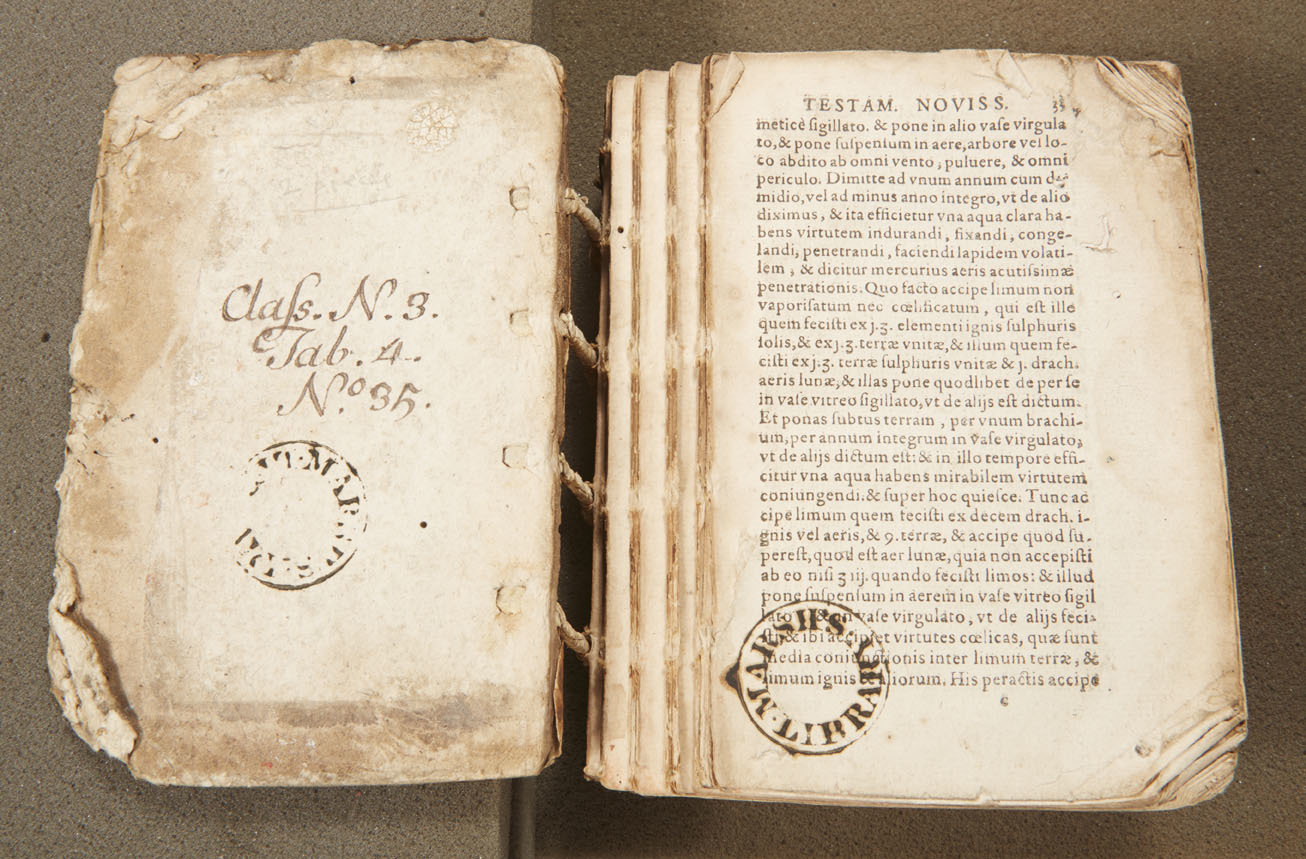 Claſs. N. 3.
Tab. 4.
N.º 35.
TESTAM. NOVISS. 33
meticè ſigillato. & pone in alio vaſe virgula
to, & pone ſuſpenſum in aere, arbore vel lo-
co abdito ab omni vento, puluere, & omni
periculo. Dimitte ad vnum annum cum de
midio, vel ad minus anno integro, vt de alio
diximus, & ita efficietur vna aqua clara ha-
bens virtutem indurandi, fixandi, conge-
landi, penetrandi, faciendi lapidem volati-
lem, & dicitur mercurius aeris acutiſſimæ
penetrationis. Quo facto accipe limum non
vaporiſatum nec cœlificatum, qui eſt ille
quem feciſti ex j. ʒ. elementi ignis ſulphuris
ſolis, & ex j. ʒ. terræ vnitæ, & illum quem fe-
ciſti ex j. ʒ. terræ ſulphuris vnitæ & j. drach.
aeris lunæ, & illas pone quodlibet de per ſe
in vaſe vitreo ſigillato, vt de alijs eſt dictum.
Et ponas ſubtus terram, per vnum brachi-
um, per annum integrum in vaſe virgulato,
vt de alijs dictum eſt: & in illo tempore effi-
citur vna aqua habens mirabilem virtutem
coniungendi. & ſuper hoc quieſce. Tunc ac
cipe limum quem feciſti ex decem drach. i-
gnis vel aeris, & 9. terræ, & accipe quod ſu-
pereſt, quod eſt aer lunæ, quia non accepiſti
ab eo niſi ʒ iij. quando feciſti limos: & illud
pone ſuſpenſum in aerem in vaſe vitreo ſigil
lato, & in vaſe virgulato, vt de alijs feci-
ſti, & ibi accipiet virtutes cœlicas, quæ ſunt
media coniunctionis inter limum terræ, &
limum ignis & aliorum. His peractis accipe
c